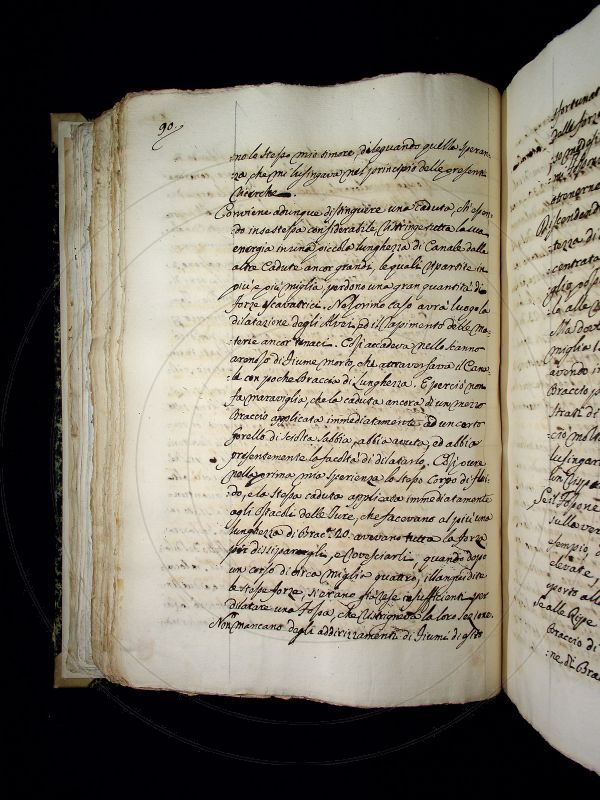 90.
:no lo stesso mio timore, dileguando quella speran:
:za, che mi lusingava nel principio delle presenti
ricerche.
Conviene adunque distinguere una caduta, ch'essen:
do in se stessa considerabile, ristringe tutta la sua
energia in una piccola lunghezza di Canale dalle
altre Cadute ancor grandi, le quali ripartite in
più, e più miglia perdono una gran quantità di
forze escavatrici. Nel primo caso avrà luogo la
dilatazione degli Alvei, ed il rapimento delle Ma:
:terie ancor tenaci. Così accadeva nello stanno
arenoso di Fiume morto, che attraversava il Cana:
:le con poche Braccia di Lunghezza. E perciò non
fa maraviglia, che la caduta ancora d'un mezzo
Braccio applicata immediatamente ad un corto
forello di sciolta sabbia, abbia avuta, ed abbia
presentemente la facoltà di dilatarlo. Così pure
nella prima mia sperienza lo stesso Corpo di flui:
do, e la stessa caduta applicata immediatamente
agli Ostacoli delle Ture, che facevano al più una
lunghezza di Brac: 120. avevano tutta la forza
per dissiparglieli, e rovesciarli, quando dopo
un corso di circa miglia quattro, illanguidite
le stesse forze, s'erano già rese insufficienti per
dilatare una Fossa, che ristringeva la loro sezione.
Non mancano degli addirizzamenti di Fiumi di questo
sfortunat
dalle forze
Discendend
:tezza di
:centrata
la alle
Ma dove
miglia
avendo in
Braccio p
Strati di
lusingar
Se il
sulla
tempio, d
elevate,
Se alle Ripe
Braccio di
:ne di Bra